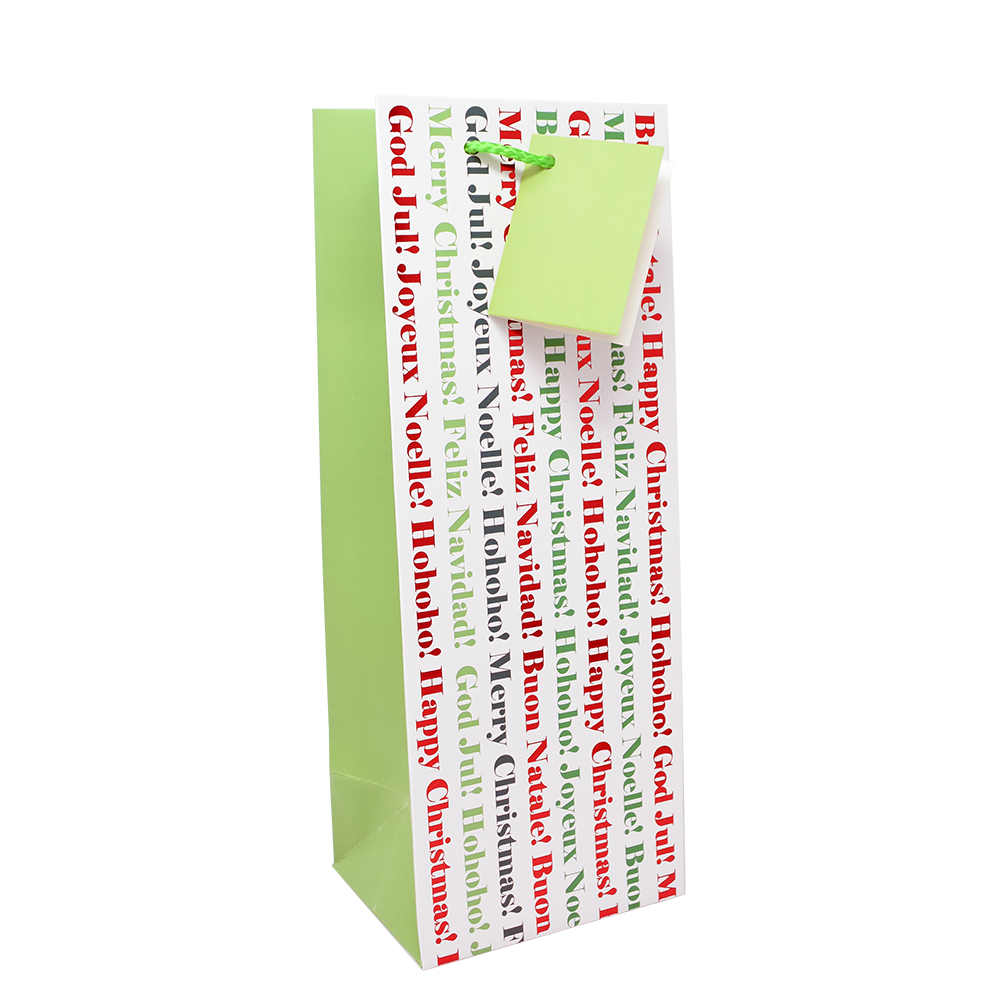 tale! Happy Christmas! Hohoho! God Jul! M
as! Feliz Navidad! Joyeux Noelle! Buo
ux Noelle! Hohoho! Happy Christmas!
Happy Christmas! Hohoho! Joyeux Noe
Merry tmas! Feliz Navidad! Buon Natale! Buon
God Jul! Joyeux Noelle! Hohoho! Merry Christmas! F
Merry Christmas! Feliz Navidad! God Jul! Hohoho! J
God Jul! Joyeux Noelle! Hohoho! Happy Christmas!